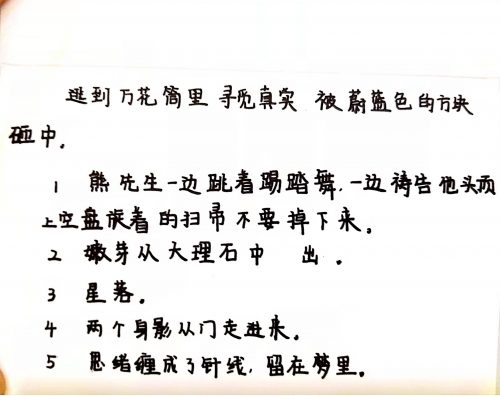 逃到万花筒里 寻觅真实 被蔚蓝色的方块
砸中。
1 熊先生一边跳着踢踏舞,一边祷告他头顶
上空盘旋着的扫帚不要掉下来。
2 嫩芽从大理石中 出 。
3 星落。
4 两个身影从门走进来。
5 思绪缠成了针线,留在梦里。